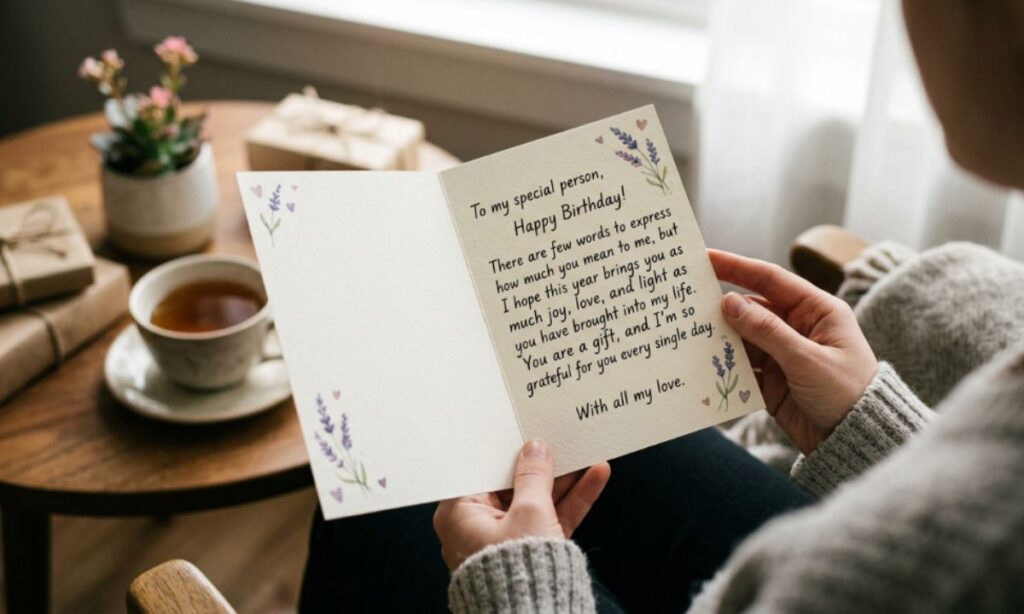 To my special person,
Happy Birthday!
There are few words to express
how much you mean to me, but
I hope this year brings you as
much joy, love, and light as
you have brought into my life.
You are a gift, and I'm so
grateful for you every single day.
With all my love.